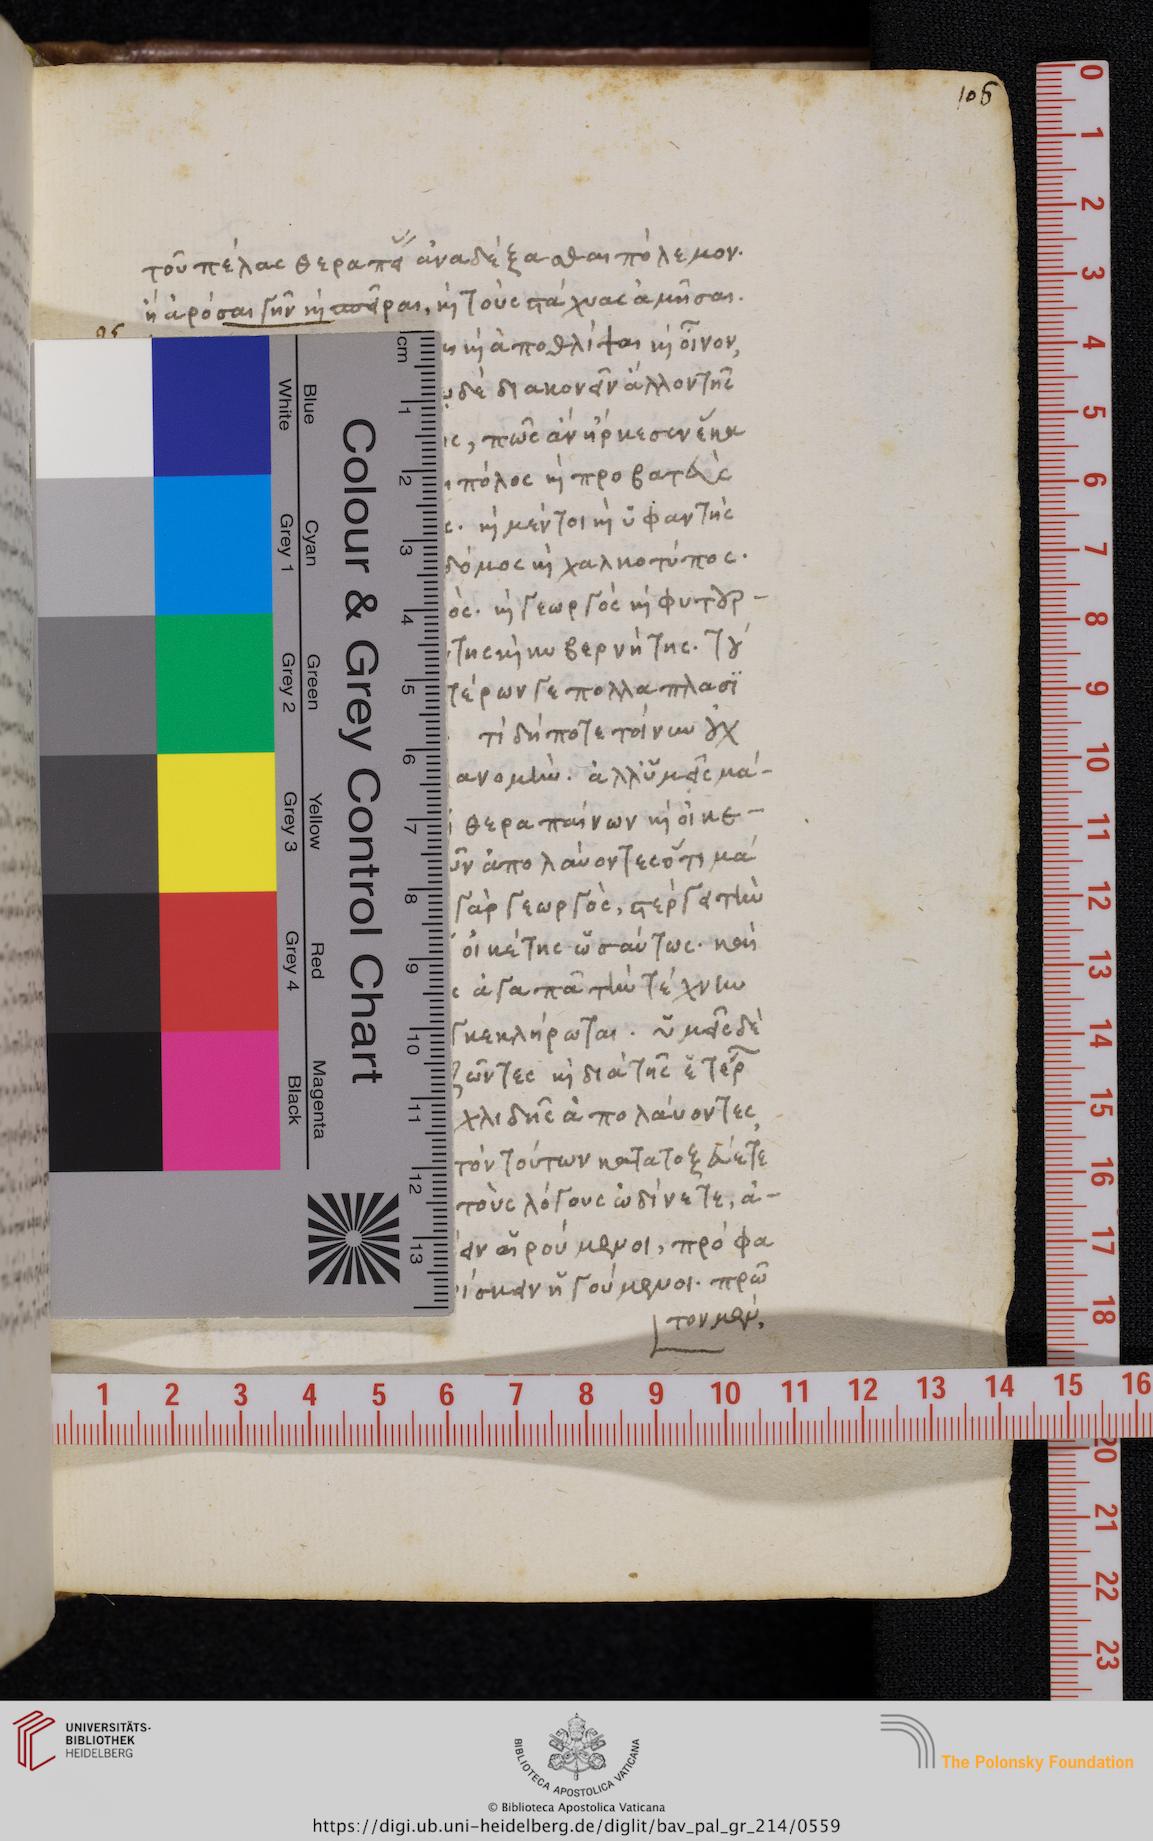 106
τοῦ πέλας θεραπείας ἀναδέξασθαι πόλεμον.
ἢ ἀρόσαι γῆν κὶ σπεῖραι, κὶ τοὺς στάχυας ἀμῆσαι.
κὶ ἀποθλίψαι κὶ οἶνον,
δὲ διακονεῖν ἄλλον τῆς
πῶς ἂν ἤρκεσεν
πόλος κὶ προβατεὺς
κὶ μέντοι κὶ ὑφαντής
δόμος κὶ χαλκοτύπος.
κὶ γεωργὸς κὶ φυτουρ-
της κὶ κυβερνήτης.
τέρων γε πολλαπλασι
τί δήποτε τοίνυν οὐχ
ανομίαν. ἀλλ' ὑμεῖς μα-
θεραπαίνων κὶ οἰκε-
ἀπολαύοντες ὅτι μα
γὰρ γεωργὸς, στέργει τὴν
οἰκέτης ὡσαύτως. καὶ
ἀγαπᾶ τὴν τέχνην
κεκλήρωται. ὑμεῖς δὲ
ζῶντες κὶ διὰ τῆς ἑτέρ
χλιδῆς ἀπολαύοντες,
τὸν τούτων κατατοξεύετε
τοὺς λόγους ὠδίνετε, ἀ-
αἱρούμενοι, πρόφα
ίσκειν ἡγούμενοι. πρῶ
τον μὲν,
cm 1 2 3 4 5 6 7 8 9 10 11 12 13
Colour & Grey Control Chart
Blue Cyan Green Yellow Red Magenta
White Grey 1 Grey 2 Grey 3 Grey 4 Black
0 1 2 3 4 5 6 7 8 9 10 11 12 13 14 15 16 17 18 20 21 22 23
1 2 3 4 5 6 7 8 9 10 11 12 13 14 15 16
UNIVERSITÄTS-
BIBLIOTHEK
HEIDELBERG
BIBLIOTECA APOSTOLICA VATICANA
The Polonsky Foundation
© Biblioteca Apostolica Vaticana
https://digi.ub.uni-heidelberg.de/diglit/bav_pal_gr_214/0559